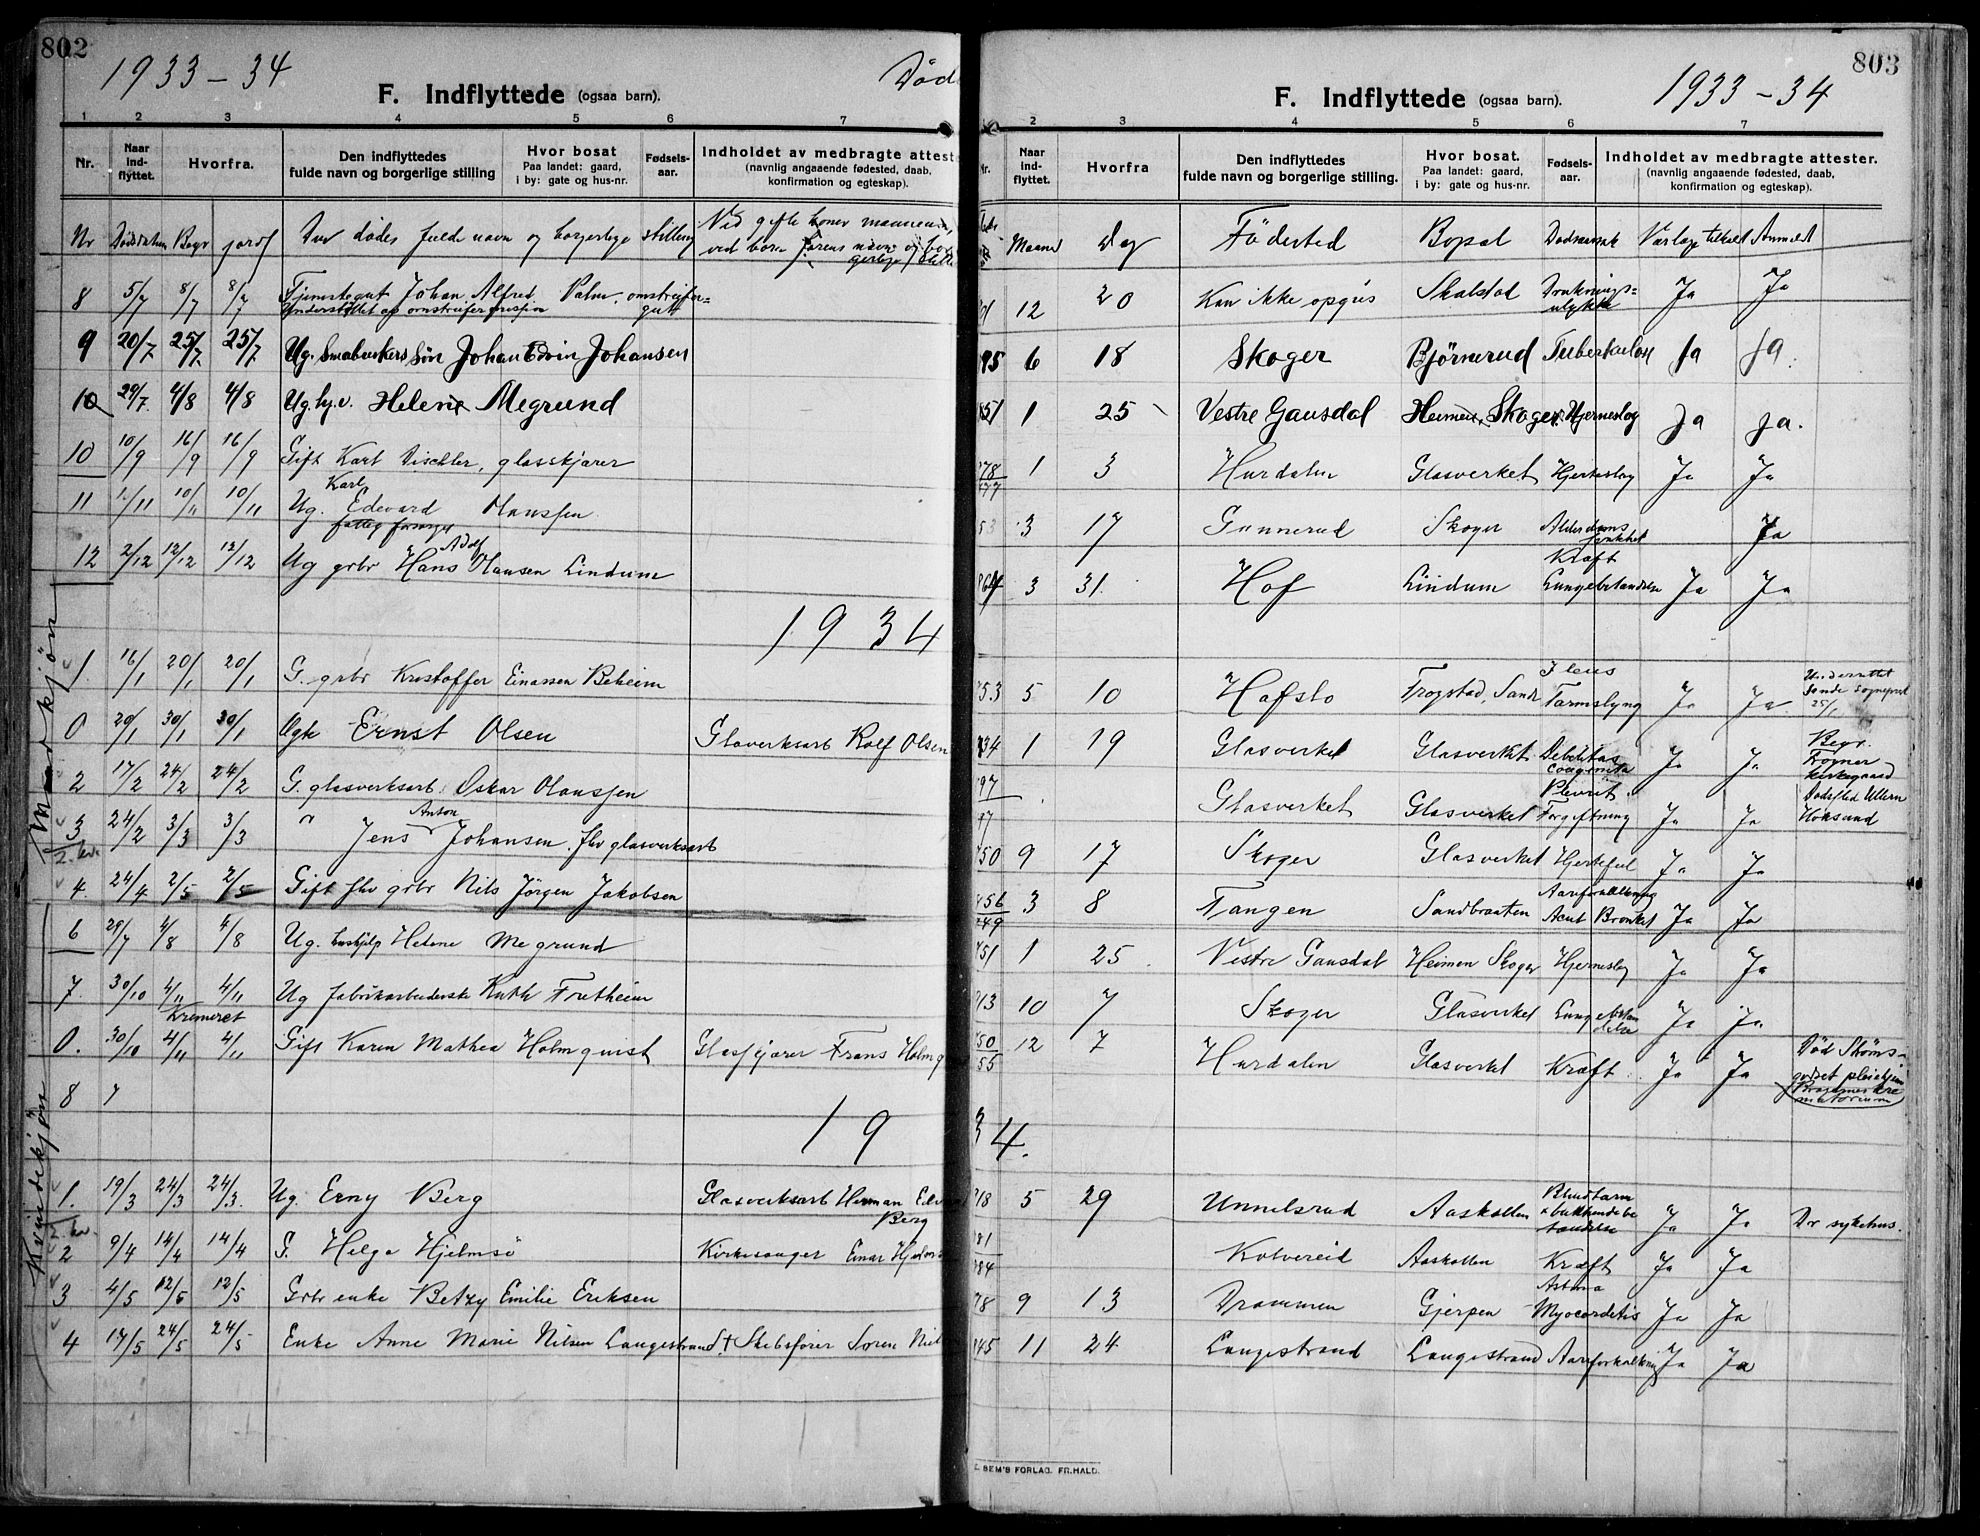 802
1933 – 34
F. Indflyttede (ogsaa barn).
1 2 3 4 5 6 7
Nr. Naar ind-flyttet. Hvorfra. Den indflyttedes fulde navn og borgerlige stilling Hvor bosat Paa landet: gaard, i by: gate og hus-nr. Fødsels-aar. Indholdet av medbragte atteste (navnlig angaaende fødested, daab, konfirmation og egteskap).
Nr Dødsdatum Begr jordf Den dødes fulde navn og borgerlige stilling Ved gifte koner mannens,
ved børn farens navn og bor
gerlige stilli
8 5/7 8/7 8/7 Tjenestegut Johan Alfred Palm, omstreifer=
Understøttet av omstreifermisjon gutt
9 20/7 25/7 25/7 Ug. Småbrukers søn Johan Edvin Johansen
10 29/7. 4/8 4/8 Ug. hj.v. Helene Megrund
10 10/9 16/9 16/9 Gift Karl Dischler, glasskjærer
Karl
11 1/11 10/11 10/11 Ug. Edevard Olaussen
fattig forsørget
Adolf
12 2/12 12/12 12/12 Ug grbr Hans Olausen Lindum
Mandkjøn
1934
1. 16/1 20/1 20/1 G. grbr Kristoffer Einassen Beheim
0 20/1 30/1 30/1 Ogk Ernst Olsen Glaverksarb Rolf Olsen
2 17/2 24/2 24/2 G. glasverksarb. Oskar Olaussen
Anton
3 24/2 3/3 3/3 " Jens Johansen, fhv glasverksarb
2. kv.
4. 24/4 2/5 2/5 Gift fhv grbr Nils Jörgen Jakobsen
6 29/7 4/8 4/8 Ug. hushjelp Helene Megrund
7. 30/10 4/11 4/11 Ug fabrikarbeiderske Ruth Fretheim
Kremeret
0. 30/10 4/11 4/11 Gift Karen Mathea Holmquist Glasskjærer Frans Holmq
8
Kvindekjøn
19
1. 19/3 24/3 24/3. Ug. Erny Berg Glasverksarb Herman Edv
Berg
2. kv.
2 9/4 14/4 14/4 S. Helga Hjelmsö Kirkesanger Einar Hjelms
3 4/5 12/5 12/5 Grbr enke Betzy Emilie Eriksen
4 17/5 24/5 24/5 Enke Anne Marie Nilsen Langestrand. † Skibsfører Soren Nil
803
F. Indflyttede (ogsaa barn).
1933 – 34
2 3 4 5 6 7
Nr. Naar ind-flyttet. Hvorfra Den indflyttedes fulde navn og borgerlige stilling. Hvor bosat. Paa landet: gaard, i by: gate og hus-nr. Fødsels-aar. Indholdet av medbragte attester. (navnlig angaaende fødested, daab, konfirmation og egteskap).
Maaned Dag Födested Bopæl Dødsaarsak Var læge tilkalt Anmeldt
12 20 Kan ikke opgis Skalstad Druknings=
ulykke Ja Ja
95 6 18 Skoger Bjørnerud Tuberkulose Ja Ja.
1 25 Vestre Gausdal Heimen, Skoger. Hjerneslag Ja Ja.
78
77 1 3 Hurdalen Glasverket Hjerteslag Ja Ja
53 3 17 Gunnerud Skoger Alderdoms
svakhet Ja
Kræft
64 3 31. Hof Lindum Lungebetændelse Ja Ja
Ileus
53 5 10 Hofslo Frogstad, Sande Tarmslyng Ja Ja Underrettet
Sande sogneprest
25/1
34 1 19 Glasverket Glasverket Debilitas
congenita Ja Ja Begr.
Frogner
kirkegaard
97
17 Glasverket Glasverket Plevrit.
Forgiftning Ja Ja Dødssted Ullern
Hoksund
50 9 17 Skoger Glasverket Hjertefeil Ja Ja
56
249 3 8 Tangen Sandbraaten Aareforkalkning
Acut Bronkit Ja Ja
51 1 25. Vestre Gausdal Heimen Skoger Hjerneslag Ja Ja
13 10 7 Skoger Glasverket Lungebetæn
delse Ja Ja
50
55 12 7 Hurdalen Glasverket Kræft Ja Ja Død Strøms-
godset pleiehjem
34.
18 5 29 Unnelsrud Aaskollen Blindtarm
+ bukhindebe
tændelse Ja Ja Dr sykehus.
81
84 Kolvereid Aaskollen Kræft Ja Ja
78 9 13 Drammen Gjerpen Astma
Myocarditis Ja Ja
45 11 24 Langestrand Langestrand Aareforkalkning Ja Ja
E. SEM'S FORLAG. FR.HALD.